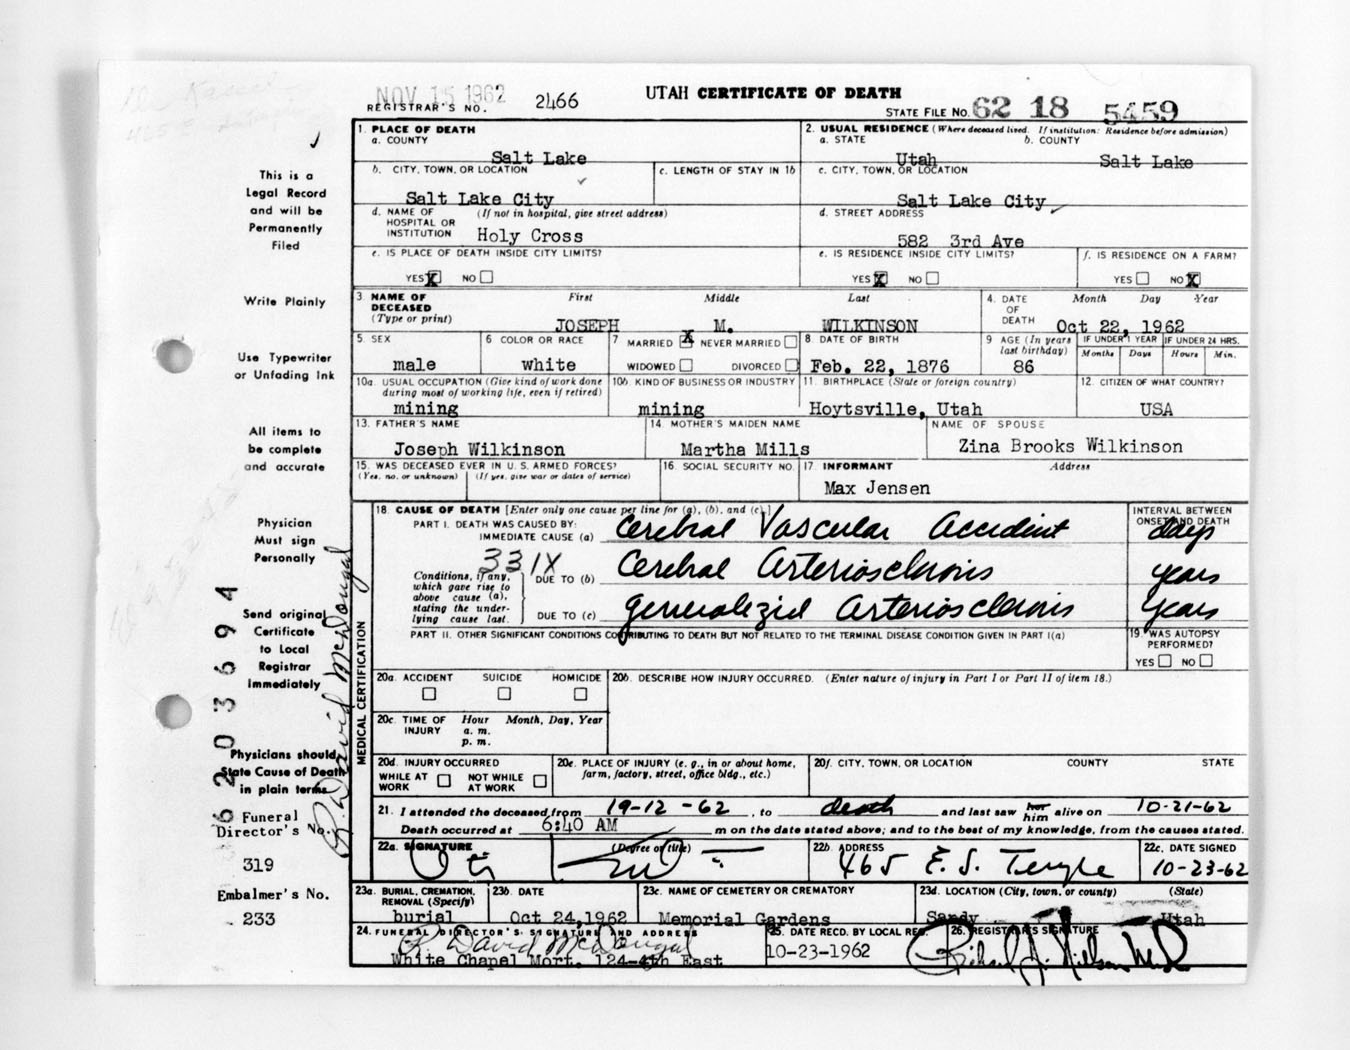 NOV 15 1962
REGISTRAR'S NO. 2466
UTAH CERTIFICATE OF DEATH
STATE FILE NO. 62 18 5459
This is a
Legal Record
and will be
Permanently
Filed
Write Plainly
Use Typewriter
or Unfading Ink
All items to
be complete
and accurate
Physician
Must sign
Personally
Send original
Certificate
to Local
Registrar
Immediately
Physicians should
State Cause of Death
in plain terms
Funeral
Director's No.
319
Embalmer's No.
233
6203694
R. David McDougal
1. PLACE OF DEATH
a. COUNTY
Salt Lake
2. USUAL RESIDENCE (Where deceased lived. If institution: Residence before admission)
a. STATE b. COUNTY
Utah Salt Lake
b. CITY, TOWN, OR LOCATION
Salt Lake City
c. LENGTH OF STAY IN 1b
c. CITY, TOWN, OR LOCATION
Salt Lake City
d. NAME OF HOSPITAL OR INSTITUTION (If not in hospital, give street address)
Holy Cross
d. STREET ADDRESS
582 3rd Ave
e. IS PLACE OF DEATH INSIDE CITY LIMITS?
YES X NO
e. IS RESIDENCE INSIDE CITY LIMITS?
YES X NO
f. IS RESIDENCE ON A FARM?
YES NO X
3. NAME OF DECEASED (Type or print)
First Middle Last
JOSEPH M. WILKINSON
4. DATE OF DEATH
Month Day Year
Oct 22, 1962
5. SEX
male
6 COLOR OR RACE
white
7 MARRIED X NEVER MARRIED
WIDOWED DIVORCED
8. DATE OF BIRTH
Feb. 22, 1876
9 AGE (In years last birthday)
86
IF UNDER 1 YEAR
Months Days
IF UNDER 24 HRS.
Hours Min.
10a. USUAL OCCUPATION (Give kind of work done during most of working life, even if retired)
mining
10b. KIND OF BUSINESS OR INDUSTRY
mining
11. BIRTHPLACE (State or foreign country)
Hoytsville, Utah
12. CITIZEN OF WHAT COUNTRY?
USA
13. FATHER'S NAME
Joseph Wilkinson
14 MOTHER'S MAIDEN NAME
Martha Mills
NAME OF SPOUSE
Zina Brooks Wilkinson
15. WAS DECEASED EVER IN U. S. ARMED FORCES?
(Yes, no, or unknown) (If yes, give war or dates of service)
16. SOCIAL SECURITY NO.
17. INFORMANT Address
Max Jensen
MEDICAL CERTIFICATION
18. CAUSE OF DEATH [Enter only one cause per line for (a), (b), and (c).]
PART I. DEATH WAS CAUSED BY:
IMMEDIATE CAUSE (a) Cerebral Vascular Accident
INTERVAL BETWEEN ONSET AND DEATH
days
331X
Conditions, if any, which gave rise to above cause (a), stating the underlying cause last.
DUE TO (b) Cerebral Arteriosclerosis years
DUE TO (c) generalezied arteriosclerosis years
PART II. OTHER SIGNIFICANT CONDITIONS CONTRIBUTING TO DEATH BUT NOT RELATED TO THE TERMINAL DISEASE CONDITION GIVEN IN PART I(a)
19. WAS AUTOPSY PERFORMED?
YES NO
20a. ACCIDENT SUICIDE HOMICIDE
20b. DESCRIBE HOW INJURY OCCURRED. (Enter nature of injury in Part I or Part II of item 18.)
20c. TIME OF INJURY Hour Month, Day, Year
a. m.
p. m.
20d. INJURY OCCURRED
WHILE AT WORK NOT WHILE AT WORK
20e. PLACE OF INJURY (e. g., in or about home, farm, factory, street, office bldg., etc.)
20f. CITY, TOWN, OR LOCATION COUNTY STATE
21. I attended the deceased from 19-12-62, to death and last saw her him alive on 10-21-62
Death occurred at 6:40 AM m on the date stated above; and to the best of my knowledge, from the causes stated.
22a. SIGNATURE (Degree or title)
22b. ADDRESS
465 E. S. Temple
22c. DATE SIGNED
10-23-62
23a. BURIAL, CREMATION, REMOVAL (Specify)
burial
23b. DATE
Oct 24,1962
23c. NAME OF CEMETERY OR CREMATORY
Memorial Gardens
23d. LOCATION (City, town, or county) (State)
Sandy Utah
24. FUNERAL DIRECTOR'S SIGNATURE AND ADDRESS
R. David McDougal
White Chapel Mort. 124-4th East
25. DATE RECD. BY LOCAL REG.
10-23-1962
26. REGISTRAR'S SIGNATURE